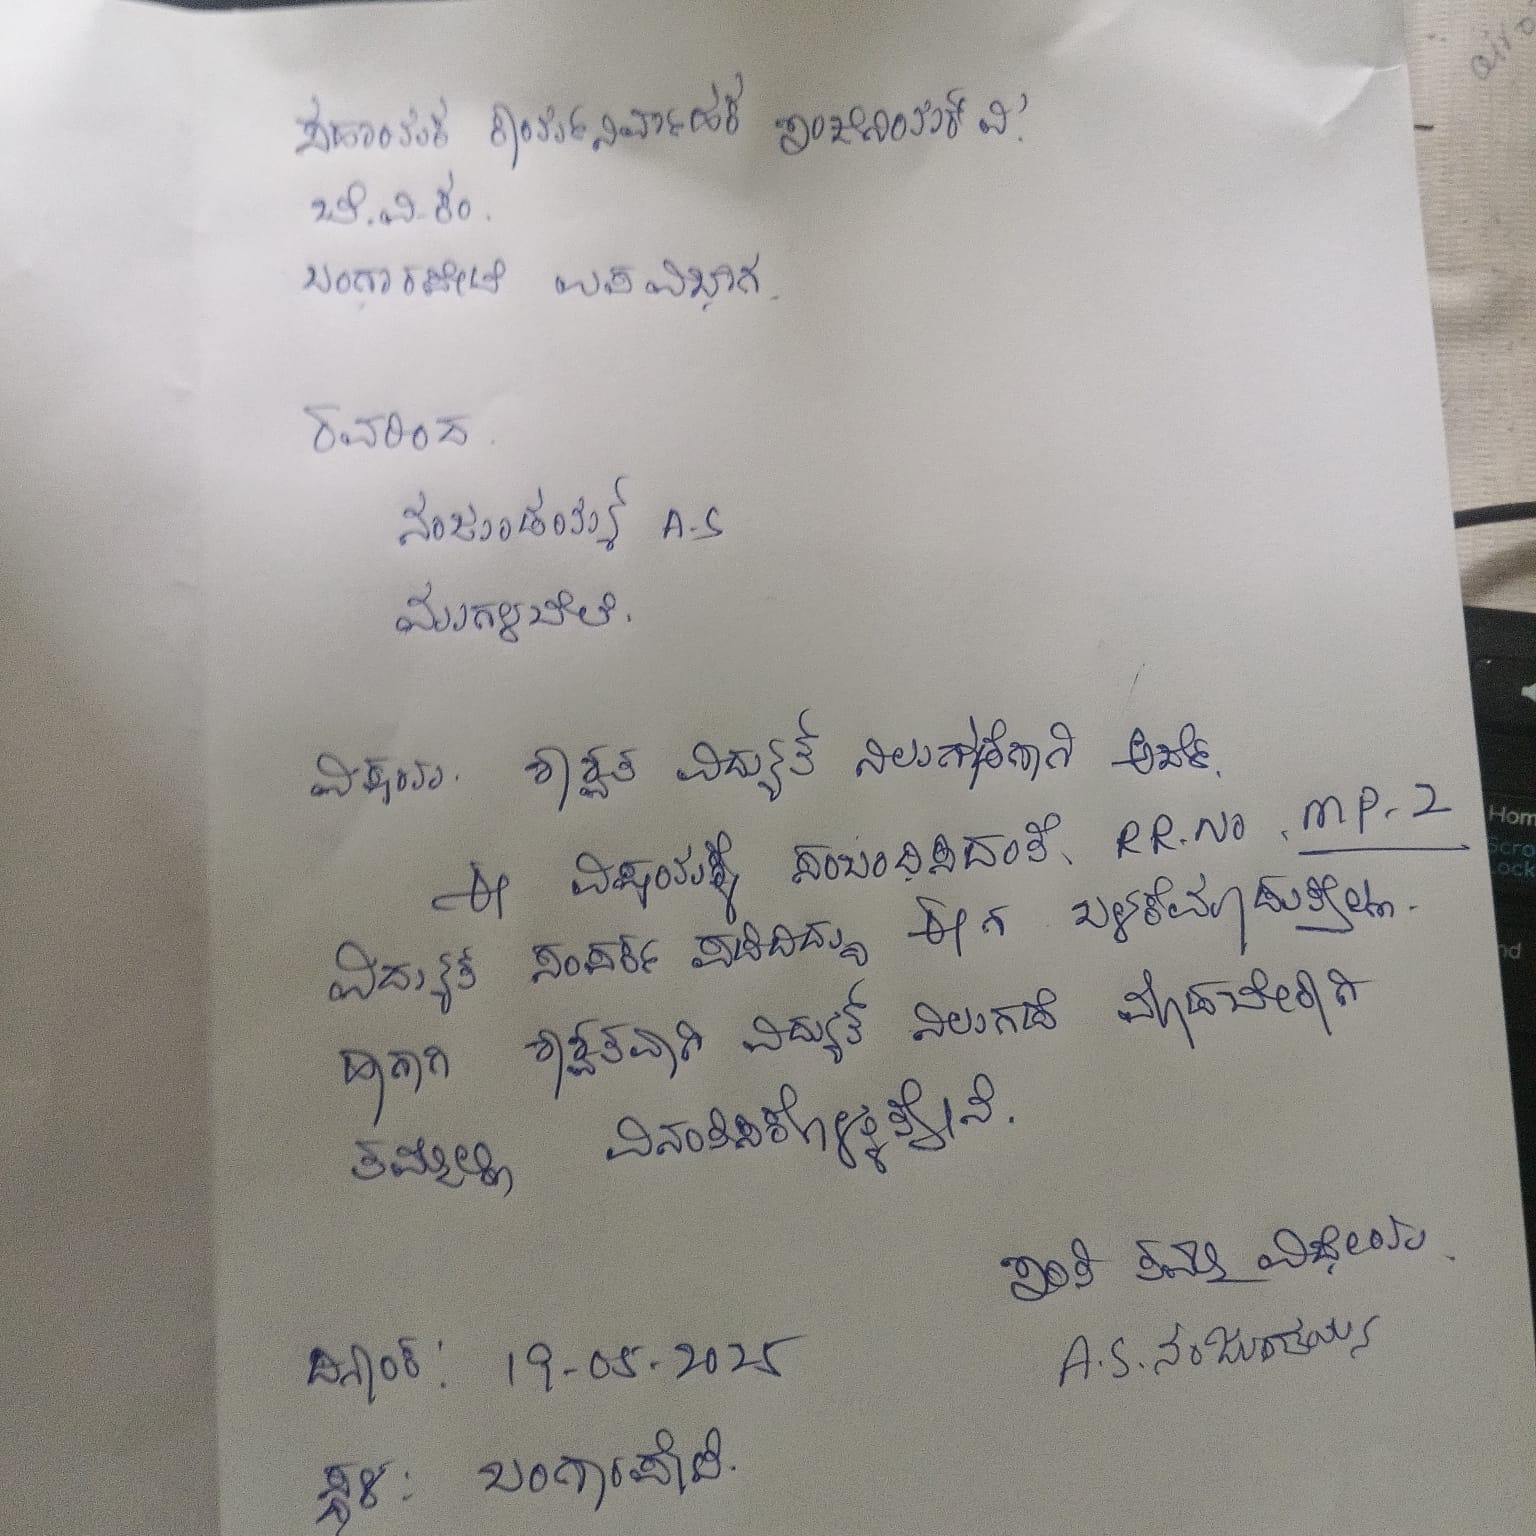 ಸಹಾಯಕ ಕಾರ್ಯನಿರ್ವಾಹಕ ಇಂಜಿನಿಯರ್ ವಿ.
ಬೆ.ವಿ.ಕಂ.
ಬಂಗಾರಪೇಟೆ ಉಪ ವಿಭಾಗ.
ರವರಿಂದ.
ನಂಜುಂಡಯ್ಯ A.S
ಮುಗಳಬೆಲೆ.
ವಿಷಯ. ಶಾಶ್ವತ ವಿದ್ಯುತ್ ನಿಲುಗಡೆಗಾಗಿ ಅರ್ಜಿ.
ಈ ವಿಷಯಕ್ಕೆ ಸಂಬಂಧಿಸಿದಂತೆ, RR.No. MP-2
ವಿದ್ಯುತ್ ಸಂಪರ್ಕ ಪಡೆದಿದ್ದು ಈಗ ಬಳಕೆಮಾಡುತ್ತಿಲ್ಲಾ.
ಹಾಗಾಗಿ ಶಾಶ್ವತವಾಗಿ ವಿದ್ಯುತ್ ನಿಲುಗಡೆ ಮಾಡಬೇಕಾಗಿ
ತಮ್ಮಲ್ಲಿ ವಿನಂತಿಸಿಕೊಳ್ಳುತ್ತೇನೆ.
ಇಂತಿ ತಮ್ಮ ವಿಧೇಯ.
A.S. ನಂಜುಂಡಯ್ಯ
ದಿನಾಂಕ: 19-05-2025
ಸ್ಥಳ: ಬಂಗಾರಪೇಟೆ.